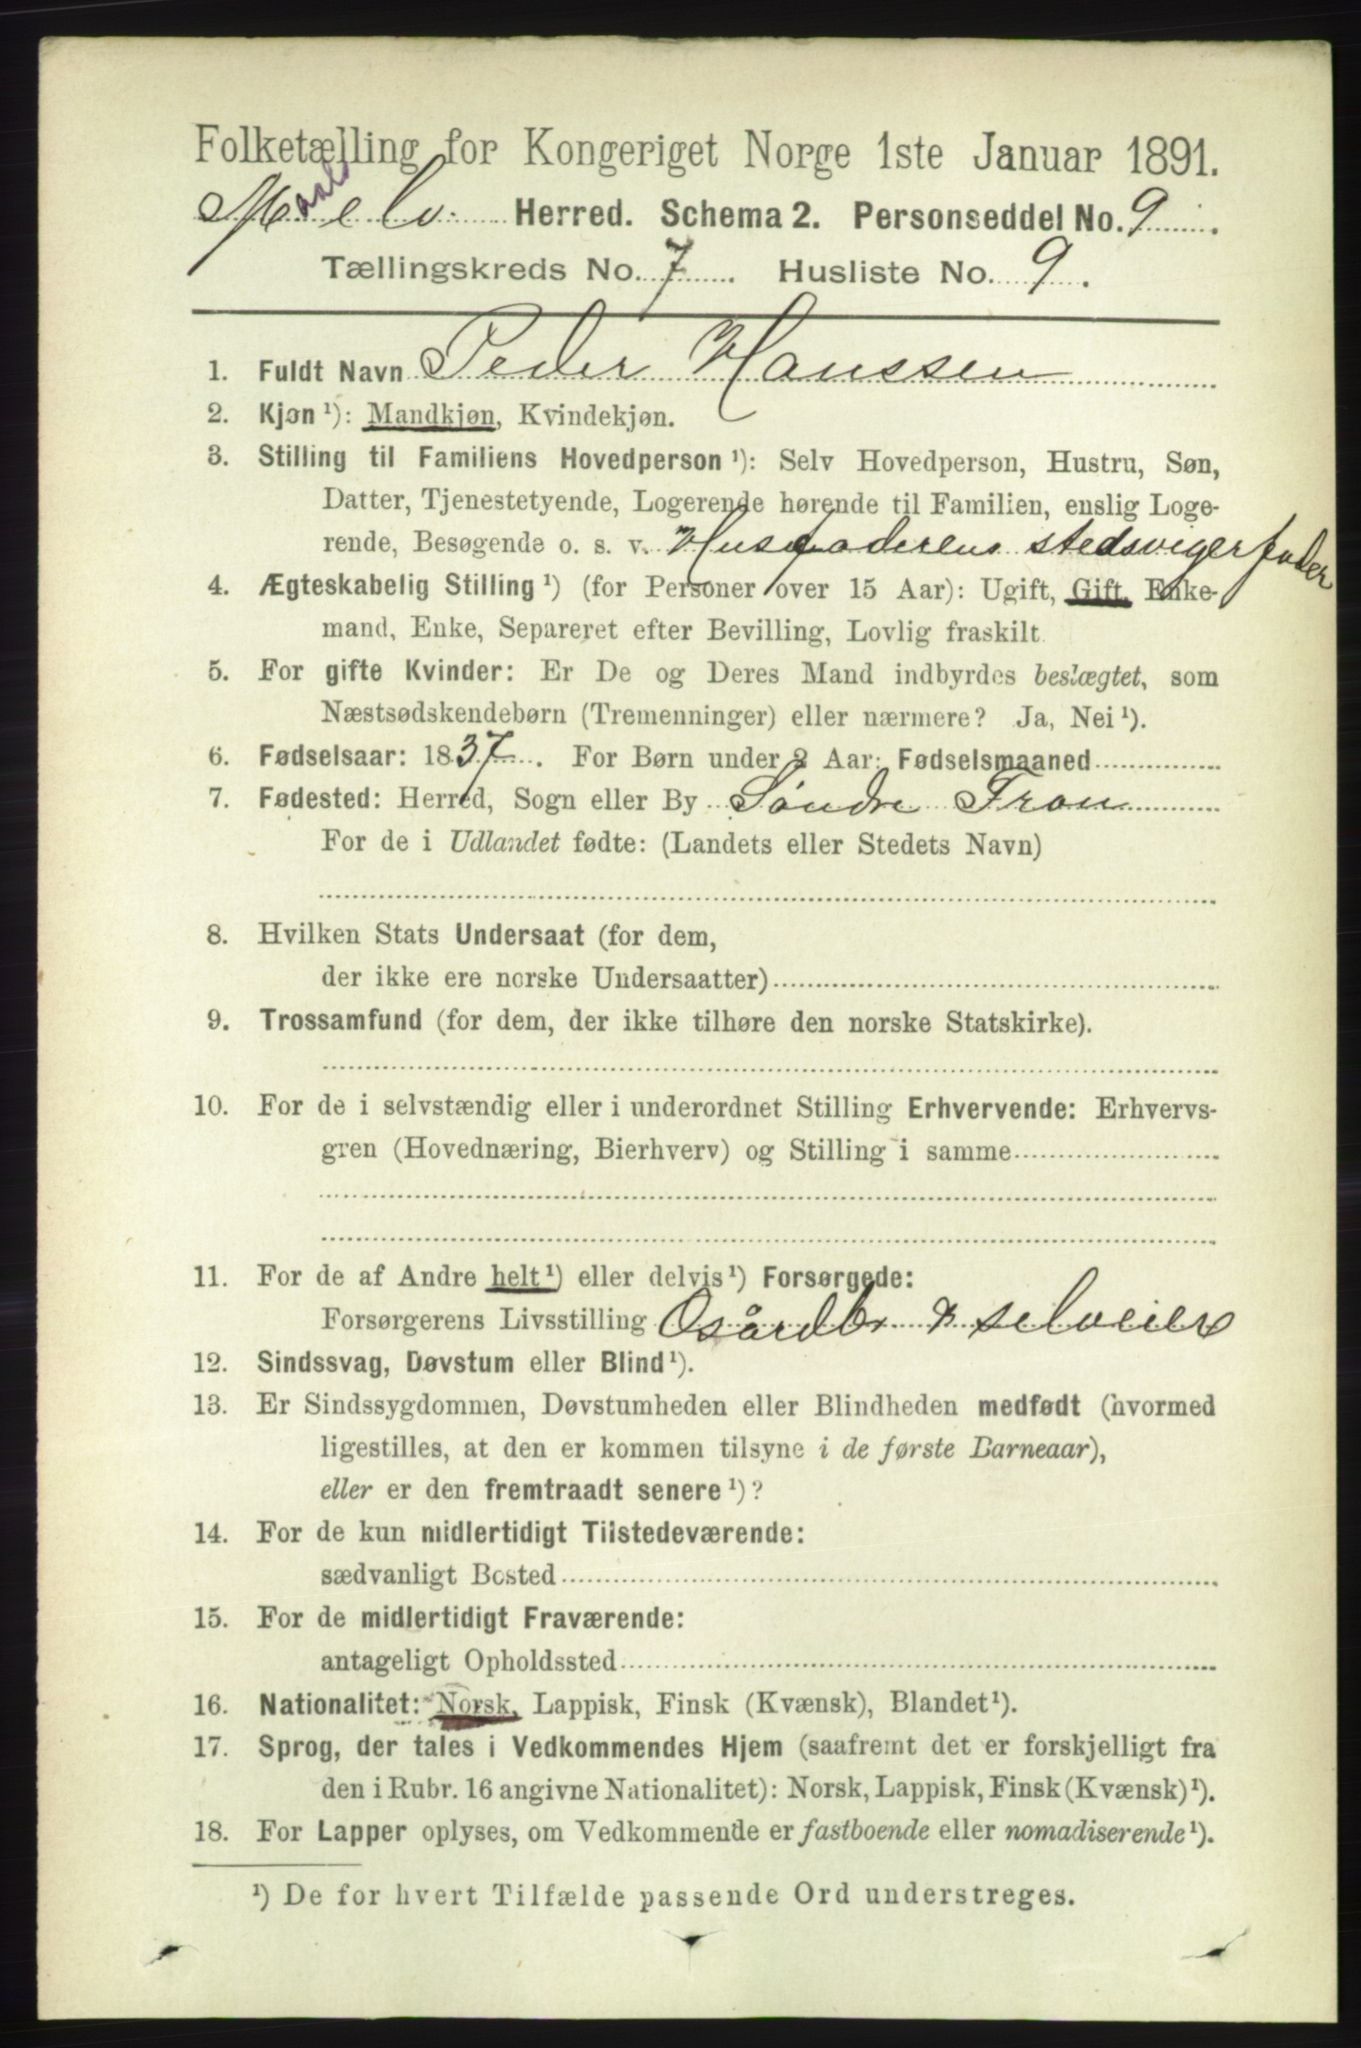 Folketælling for Kongeriget Norge 1ste Januar 1891.
Maalselv Herred. Schema 2. Personseddel No. 9.
Tællingskreds No. 7. Husliste No. 9.
1. Fuldt Navn Peder Hanssen
2. Kjøn ¹): Mandkjøn, Kvindekjøn.
3. Stilling til Familiens Hovedperson ¹): Selv Hovedperson, Hustru, Søn,
Datter, Tjenestetyende, Logerende hørende til Familien, enslig Loge-
rende, Besøgende o. s. v. Husfaderens stedsvigerfader
4. Ægteskabelig Stilling ¹) (for Personer over 15 Aar): Ugift, Gift, Enke-
mand, Enke, Separeret efter Bevilling, Lovlig fraskilt
5. For gifte Kvinder: Er De og Deres Mand indbyrdes beslægtet, som
Næstsødskendebørn (Tremenninger) eller nærmere? Ja, Nei ¹).
6. Fødselsaar: 1837. For Børn under 2 Aar: Fødselsmaaned
7. Fødested: Herred, Sogn eller By Söndre Fron
For de i Udlandet fødte: (Landets eller Stedets Navn)
8. Hvilken Stats Undersaat (for dem,
der ikke ere norske Undersaatter)
9. Trossamfund (for dem, der ikke tilhøre den norske Statskirke).
10. For de i selvstændig eller i underordnet Stilling Erhvervende: Erhvervs-
gren (Hovednæring, Bierhverv) og Stilling i samme
11. For de af Andre helt ¹) eller delvis ¹) Forsørgede:
Forsørgerens Livsstilling Gårdbr & selveier
12. Sindssvag, Døvstum eller Blind ¹).
13. Er Sindssygdommen, Døvstumheden eller Blindheden medfødt (hvormed
ligestilles, at den er kommen tilsyne i de første Barneaar),
eller er den fremtraadt senere ¹)?
14. For de kun midlertidigt Tilstedeværende:
sædvanligt Bosted
15. For de midlertidigt Fraværende:
antageligt Opholdssted
16. Nationalitet: Norsk, Lappisk, Finsk (Kvænsk), Blandet ¹).
17. Sprog, der tales i Vedkommendes Hjem (saafremt det er forskjelligt fra
den i Rubr. 16 angivne Nationalitet): Norsk, Lappisk, Finsk (Kvænsk) ¹).
18. For Lapper oplyses, om Vedkommende er fastboende eller nomadiserende ¹).
¹) De for hvert Tilfælde passende Ord understreges.